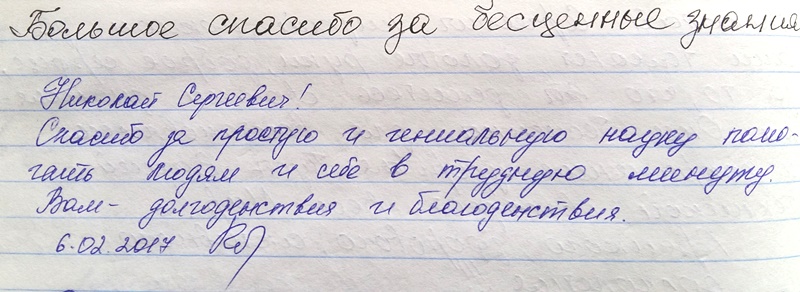 Большое спасибо за бесценные знания
Николай Сергеевич!
Спасибо за простую и гениальную науку помо-
гать людям и себе в трудную минуту.
Вам - долгоденствия и благоденствия.
6.02.2017